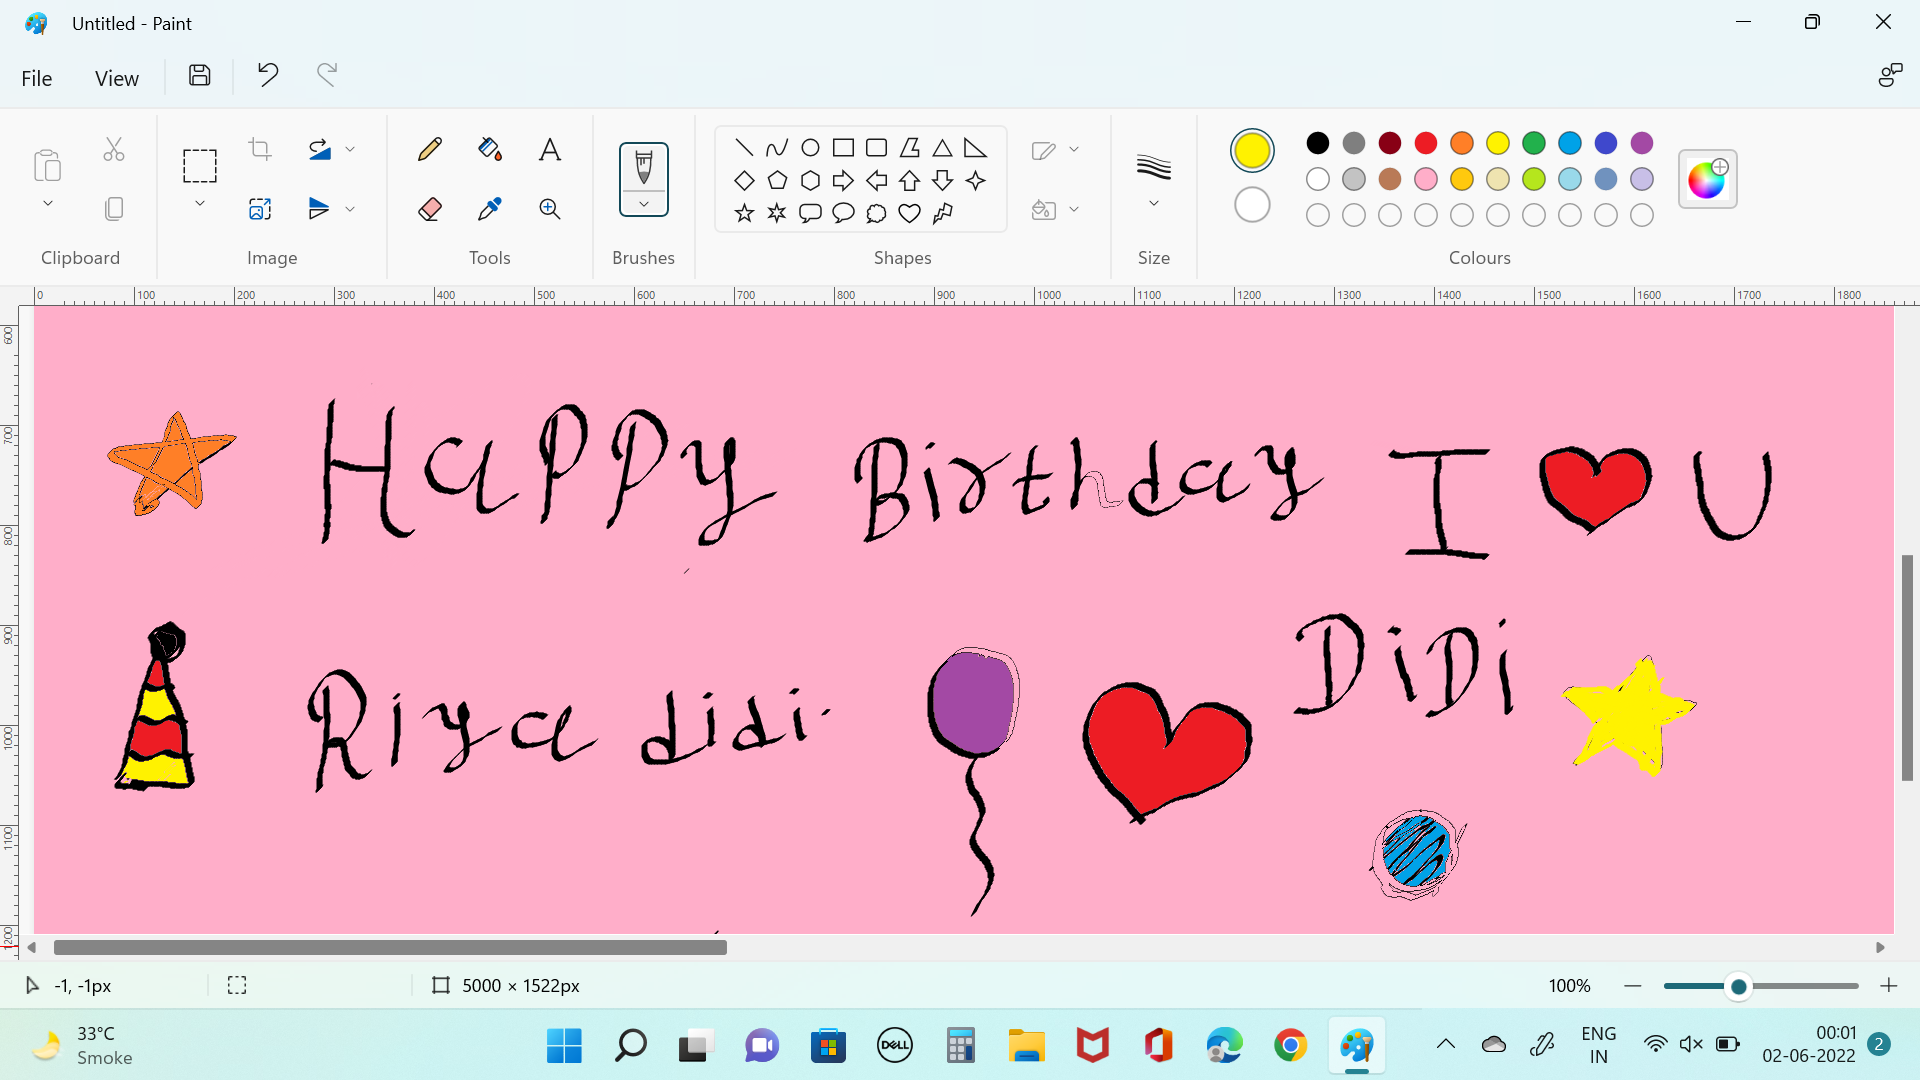 Untitled - Paint
File View
Clipboard Image Tools Brushes Shapes Size Colours
0 100 200 300 400 500 600 700 800 900 1000 1100 1200 1300 1400 1500 1600 1700 1800
600
700
800
900
1000
1100
1200
HaPPy Birthday I ❤ U
Riya didi
DiDi
-1, -1px 5000 × 1522px 100%
33°C
Smoke
DELL
ENG
IN
00:01
02-06-2022
2